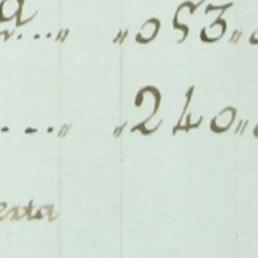 a... „ „053„
...„ „240„
exta